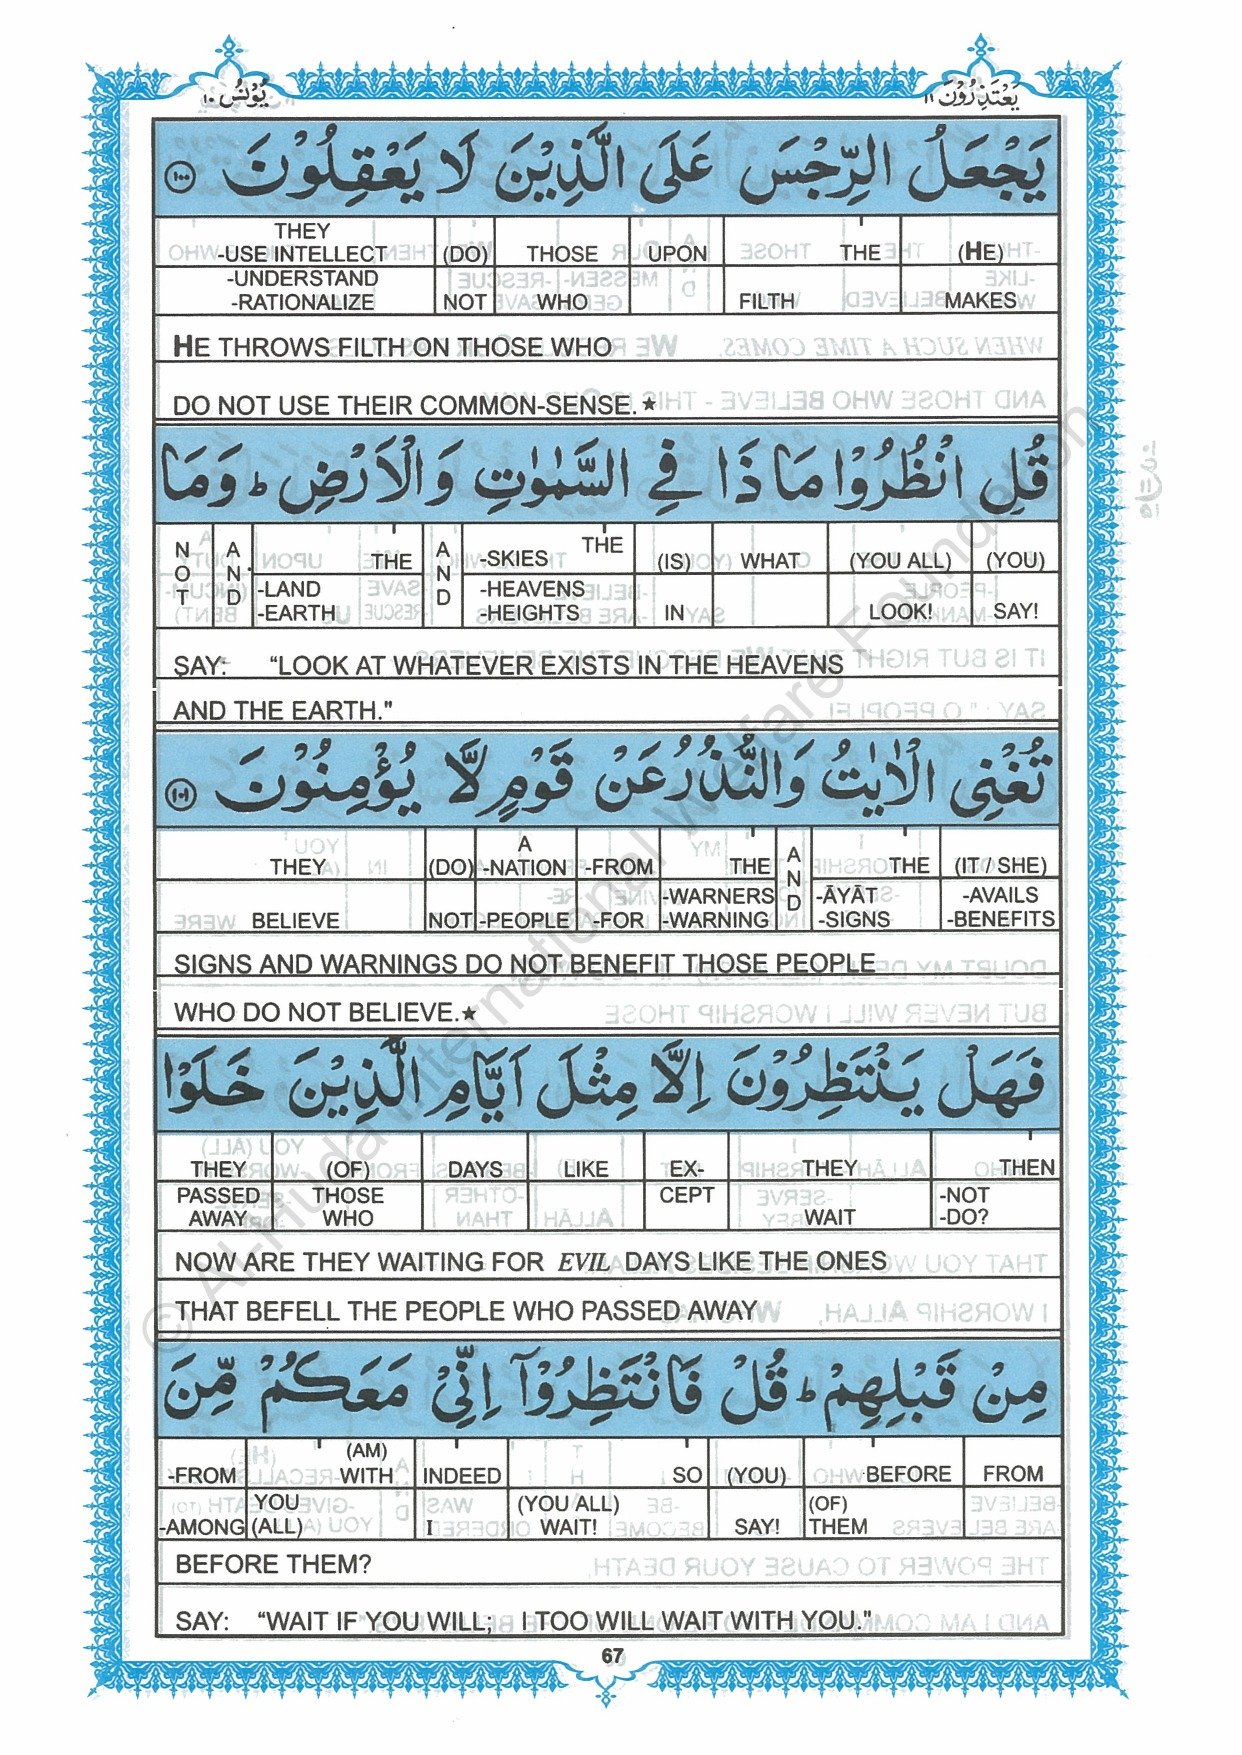 يَعْتَذِرُوْنَ ١١
يُوْنُسُ ١٠
يَجْعَلُ الرِّجْسَ عَلَى الَّذِيْنَ لَا يَعْقِلُوْنَ ﴿١٠٠﴾
THEY
-USE INTELLECT (DO) THOSE UPON THE (HE)
-UNDERSTAND
-RATIONALIZE NOT WHO FILTH MAKES
HE THROWS FILTH ON THOSE WHO
DO NOT USE THEIR COMMON-SENSE.★
قُلِ انْظُرُوْا مَاذَا فِي السَّمٰوٰتِ وَالْاَرْضِ ؕ وَمَا
NOT AND THE AND -SKIES THE (IS) WHAT (YOU ALL) (YOU)
-LAND -HEAVENS
-EARTH -HEIGHTS IN LOOK! SAY!
SAY: "LOOK AT WHATEVER EXISTS IN THE HEAVENS
AND THE EARTH."
تُغْنِى الْاٰيٰتُ وَالنُّذُرُ عَنْ قَوْمٍ لَّا يُؤْمِنُوْنَ ﴿١٠١﴾
A
THEY (DO) -NATION -FROM THE AND THE (IT / SHE)
-WARNERS -ĀYĀT -AVAILS
BELIEVE NOT -PEOPLE -FOR -WARNING -SIGNS -BENEFITS
SIGNS AND WARNINGS DO NOT BENEFIT THOSE PEOPLE
WHO DO NOT BELIEVE.★
فَهَلْ يَنْتَظِرُوْنَ اِلَّا مِثْلَ اَيَّامِ الَّذِيْنَ خَلَوْا
THEY (OF) DAYS LIKE EX- THEY THEN
PASSED THOSE CEPT -NOT
AWAY WHO WAIT -DO?
NOW ARE THEY WAITING FOR EVIL DAYS LIKE THE ONES
THAT BEFELL THE PEOPLE WHO PASSED AWAY
مِنْ قَبْلِهِمْ ؕ قُلْ فَانْتَظِرُوْۤا اِنِّيْ مَعَكُمْ مِّنَ
(AM)
-FROM WITH INDEED SO (YOU) BEFORE FROM
YOU (YOU ALL) (OF)
-AMONG (ALL) I WAIT! SAY! THEM
BEFORE THEM?
SAY: "WAIT IF YOU WILL; I TOO WILL WAIT WITH YOU."
67
© Al-Huda International Welfare Foundation